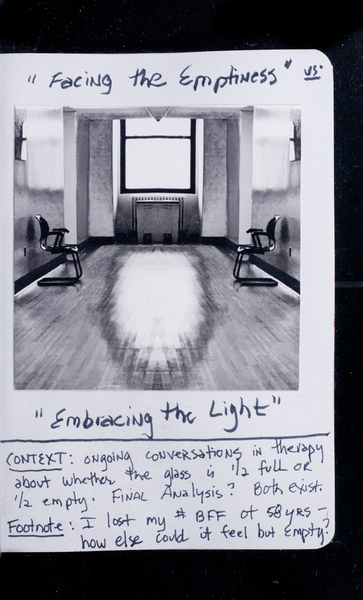 "Facing the Emptiness" vs.
"Embracing the Light"
CONTEXT: ongoing conversations in therapy
about whether the glass is 1/2 full or
1/2 empty. FINAL ANALYSIS? Both exist.
Footnote: I lost my # BFF of 58 yrs –
how else could it feel but empty?